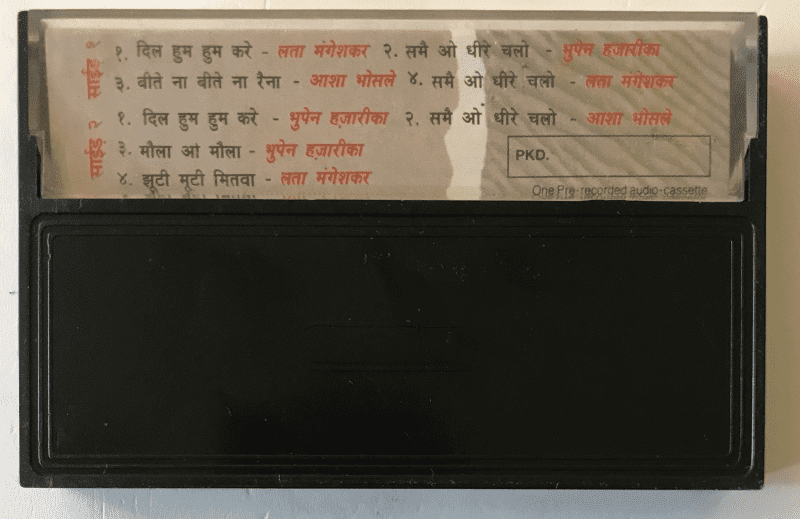 साईड १
१. दिल हुम हुम करे - लता मंगेशकर २. समै ओ धीरे चलो - भुपेन हज़ारीका
३. बीते ना बीते ना रैना - आशा भोसले ४. समै ओ धीरे चलो - लता मंगेशकर
साईड २
१. दिल हुम हुम करे - भुपेन हज़ारीका २. समै ओ धीरे चलो - आशा भोसले
३. मौला ओ मौला - भुपेन हज़ारीका
४. झूटी मूटी मितवा - लता मंगेशकर
PKD.
One Pre-recorded audio-cassette